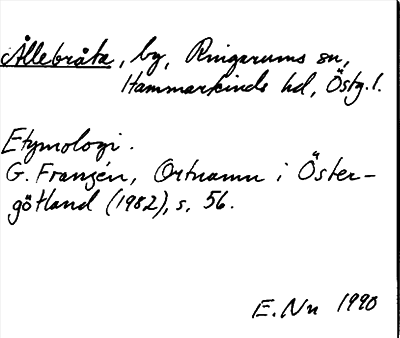 Ållebråta, by, Ringarums sn,
Hammarkinds hd, Östg.l.
Etymologi.
G. Franzén, Ortnamn i Öster-
götland (1982), s. 56.
E. Nn 1990